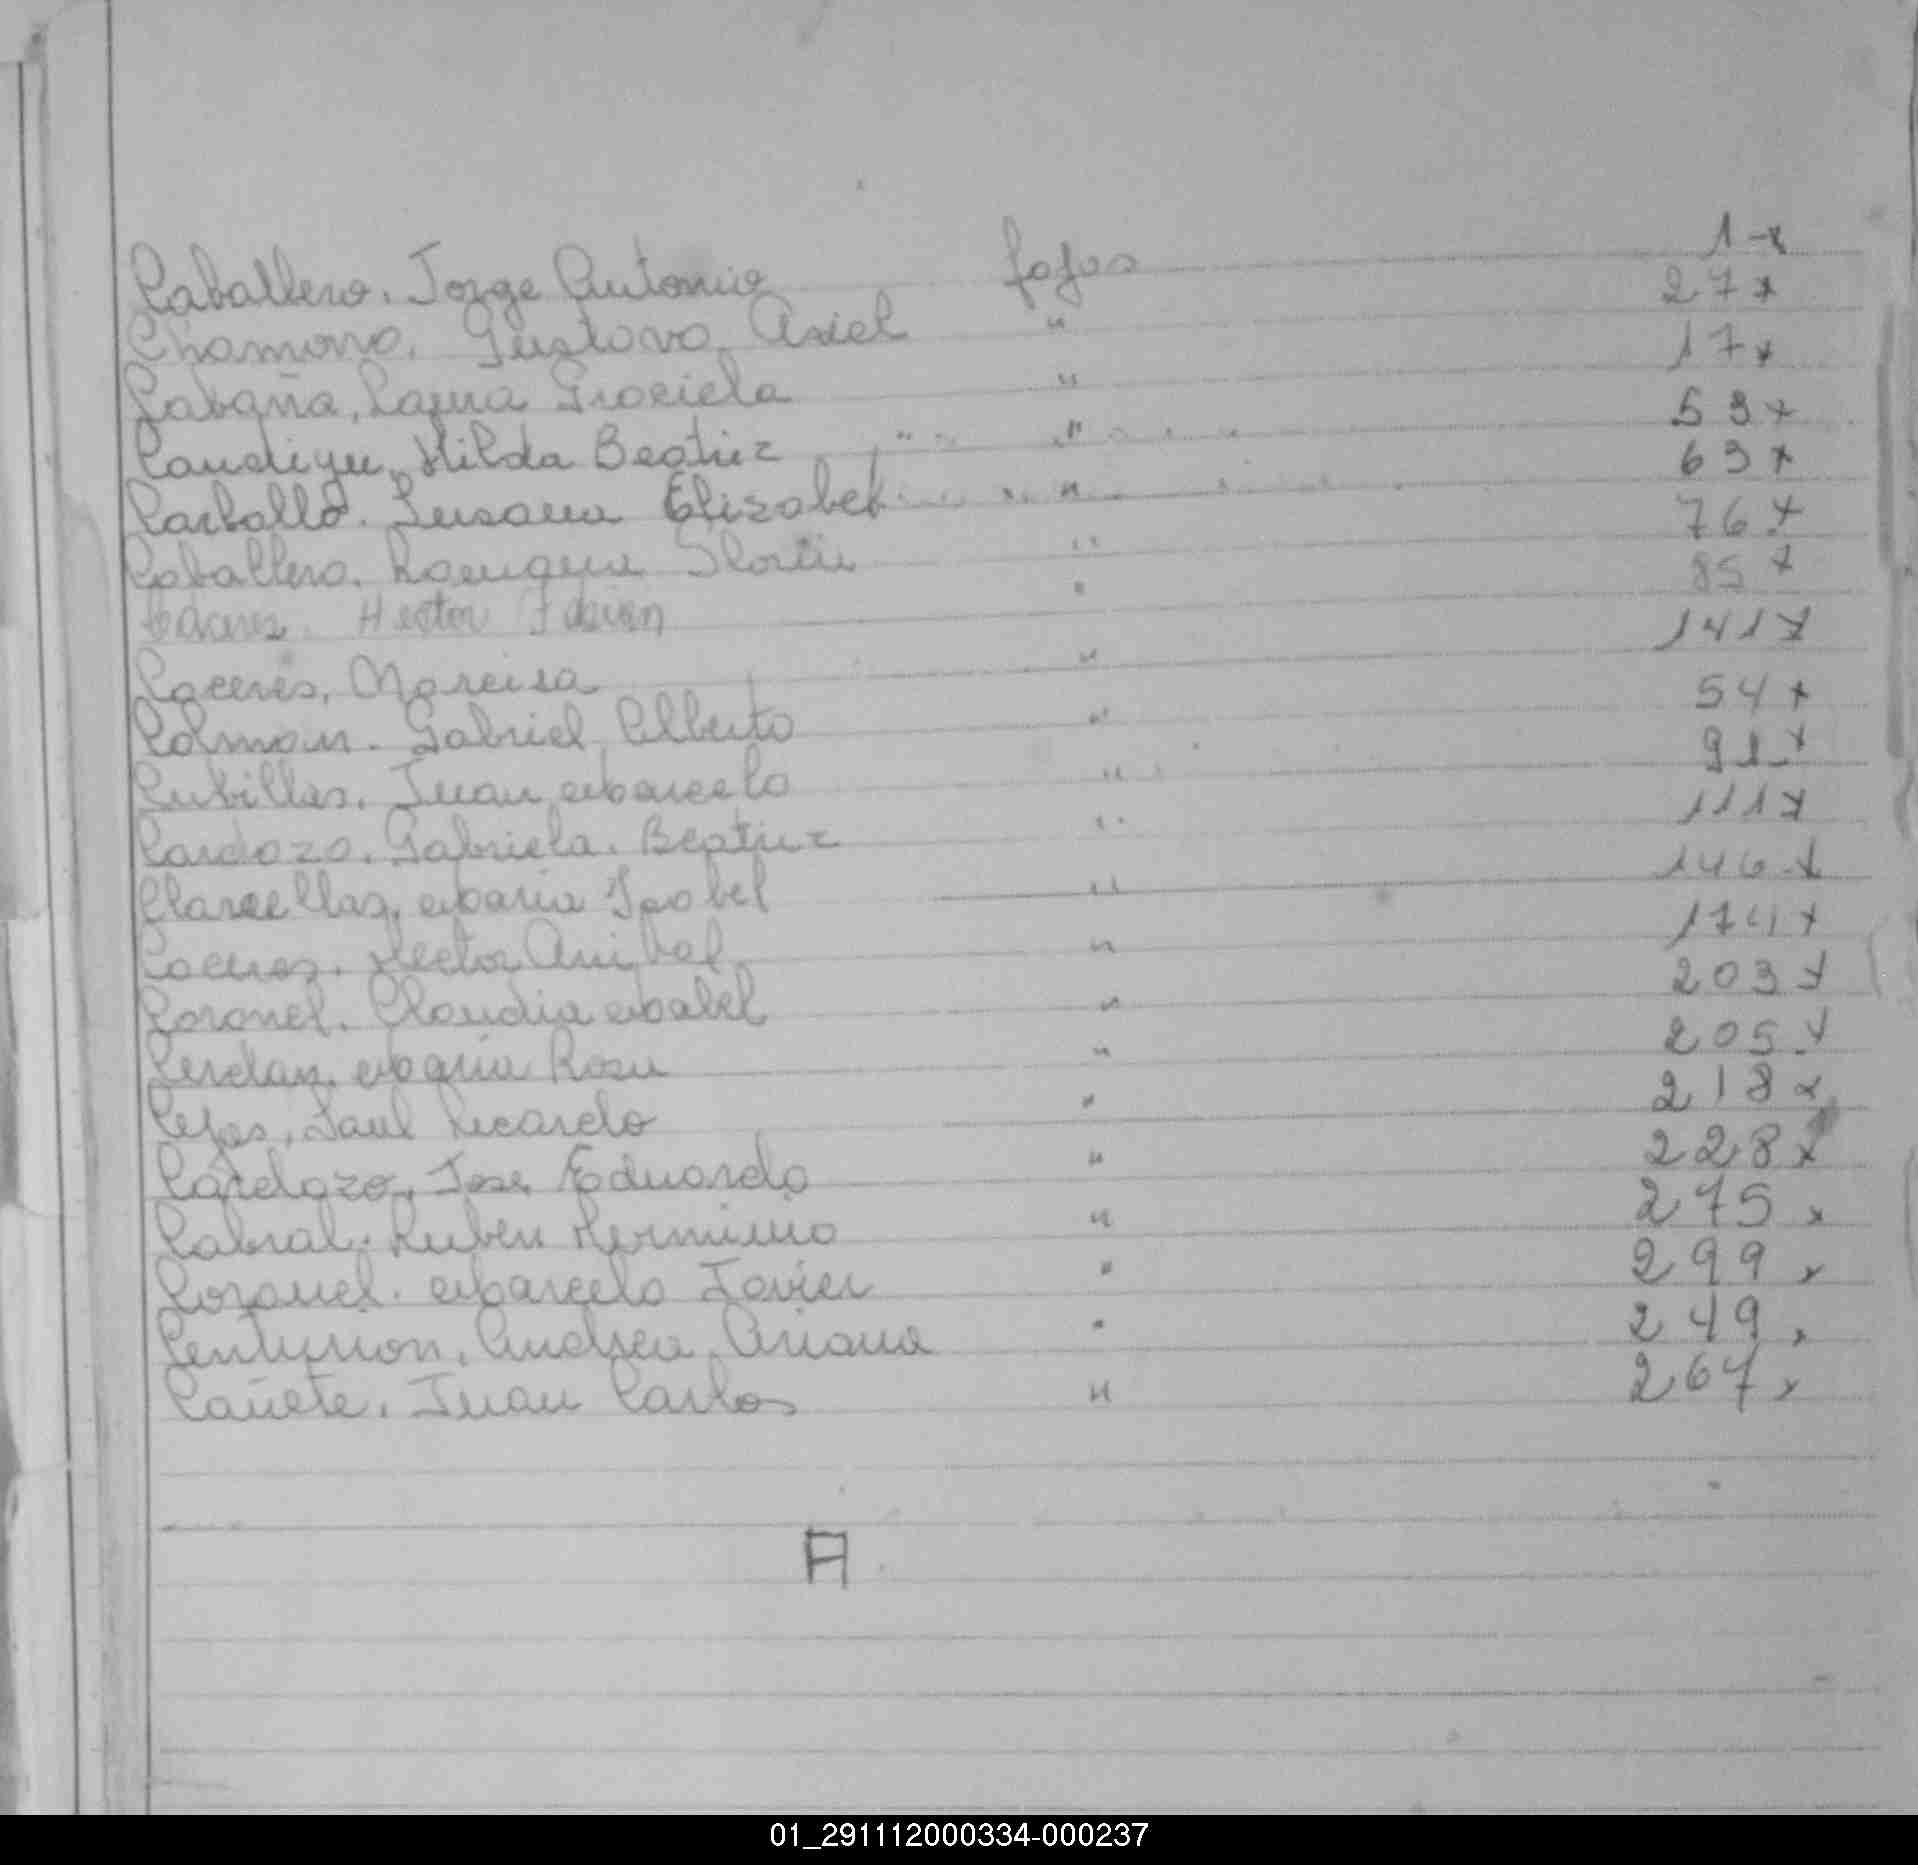 Caballero, Jorge Antonio fojas 1-x
Chamorro, Gustavo Ariel " 27x
Cabaña, Laura Graciela " 17x
Candiyu, Hilda Beatriz " 53x
Carballo. Susana Elizabet " 63x
Caballero. Ramona " 76x
Caceres. Hector Fabian " 85x
Caceres, Narcisa " 141x
Colman. Gabriel Alberto " 54x
Cubillas, Juan Marcelo " 91x
Cardozo, Gabriela. Beatriz " 111x
Maria Isabel " 146x
Caceres. Hector Anibal " 174x
Coronel. Claudia Mabel " 203x
Cerdan, Maria Rosa " 205x
Cejas, Saul Ricardo " 218x
Cardozo, Jose Eduardo " 228x
Cabral. Ruben Herminio " 275x
Coronel. Marcelo Javier " 299x
Centurion, Andrea Ariana " 249x
Cañete, Juan Carlos " 267x
A
01_291112000334-000237